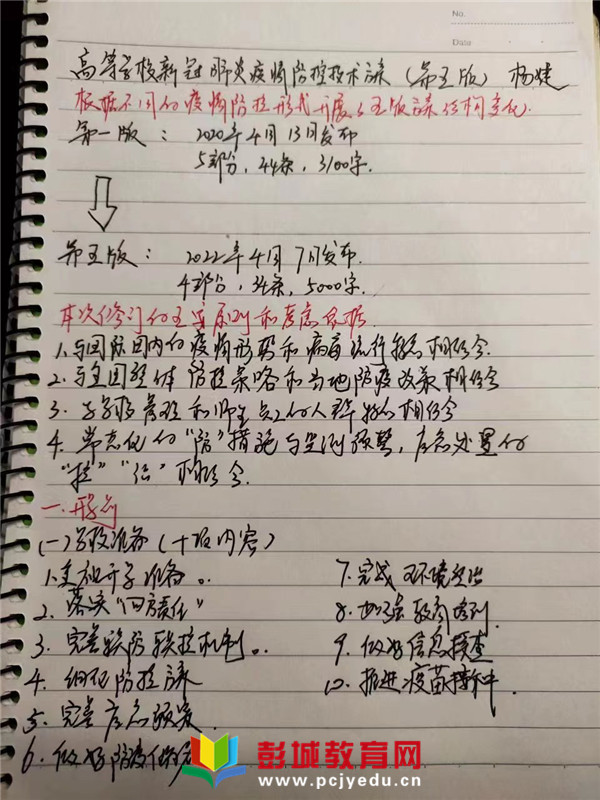 No.
Date
高等学校新冠肺炎疫情防控技术方案（第五版） 杨婕
根据不同的疫情防控形式开展，五版方案的相变化
第一版： 2020年4月13日发布
5部分，44条，3100字.
第五版： 2022年4月7日发布.
4部分，34条，5000字.
本次修订的主要原则和考虑依据
1.与国际国内的疫情形势和病毒流行特点相结合.
2.与全国整体防控策略和当地防疫政策相结合
3.与学校管理和师生员工的人群特点相结合
4.常态化的“防”措施与监测预警，应急处置的
“控”“治”相结合.
一.开学前
(一)学校准备（十项内容）
1.
开学准备。
2.落实“四方责任”
3.完善联防联控机制。
4.细化防控方案
5.完善应急预案.
6.做好防疫
7.完成环境整治
8.加强教育培训
9.做好信息摸查
10.推进疫苗接种.
彭城教育网
www.pcjyedu.cn